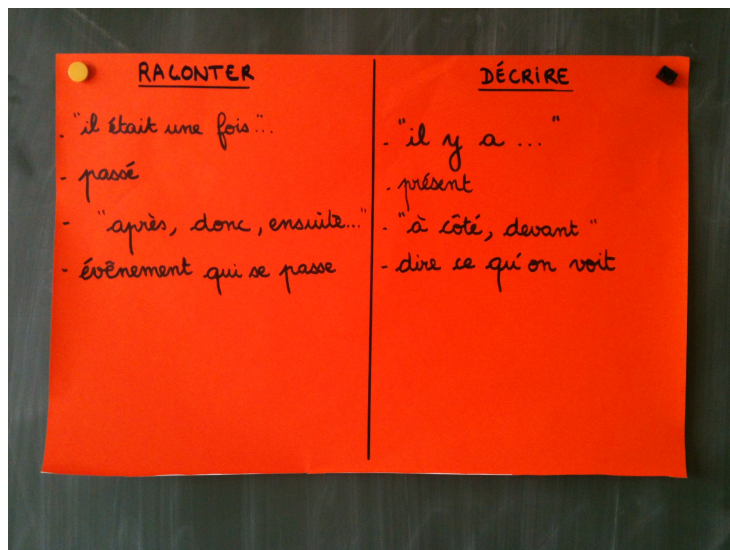 RACONTER
- "il était une fois"...
- passé
- "après, donc, ensuite..."
- évênement qui se passe
DÉCRIRE
- "il y a ..."
- présent
- "à côté, devant"
- dire ce qu'on voit